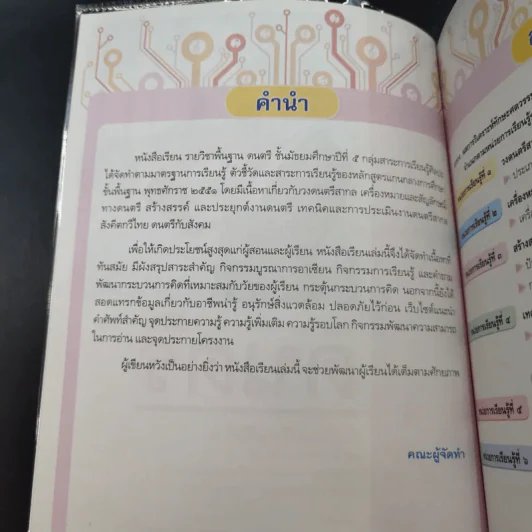 คำนำ
หนังสือเรียน รายวิชาพื้นฐาน ดนตรี ชั้นมัธยมศึกษาปีที่ ๕ กลุ่มสาระการเรียนรู้ศิลปะ
ได้จัดทำตามมาตรฐานการเรียนรู้ ตัวชี้วัดและสาระการเรียนรู้ของหลักสูตรแกนกลางการศึกษา
ขั้นพื้นฐาน พุทธศักราช ๒๕๕๑ โดยมีเนื้อหาเกี่ยวกับวงดนตรีสากล เครื่องหมายและสัญลักษณ์
ทางดนตรี สร้างสรรค์ และประยุกต์งานดนตรี เทคนิคและการประเมินงานดนตรีสากล
สังคีตกวีไทย ดนตรีกับสังคม
เพื่อให้เกิดประโยชน์สูงสุดแก่ผู้สอนและผู้เรียน หนังสือเรียนเล่มนี้จึงได้จัดทำเนื้อหาที่
ทันสมัย มีผังสรุปสาระสำคัญ กิจกรรมบูรณาการอาเซียน กิจกรรมการเรียนรู้ และคำถาม
พัฒนากระบวนการคิดที่เหมาะสมกับวัยของผู้เรียน กระตุ้นกระบวนการคิด นอกจากนี้ยังได้
สอดแทรกข้อมูลเกี่ยวกับอาชีพน่ารู้ อนุรักษ์สิ่งแวดล้อม ปลอดภัยไว้ก่อน เว็บไซต์แนะนำ
คำศัพท์สำคัญ จุดประกายความรู้ ความรู้เพิ่มเติม ความรู้รอบโลก กิจกรรมพัฒนาความสามารถ
ในการอ่าน และจุดประกายโครงงาน
ผู้เขียนหวังเป็นอย่างยิ่งว่า หนังสือเรียนเล่มนี้ จะช่วยพัฒนาผู้เรียนได้เต็มตามศักยภาพ
คณะผู้จัดทำ
วงดนตรีสา
หน่วยการเรียนรู้ที่ ๕
หน่วยการเรียนรู้ที่ ๖